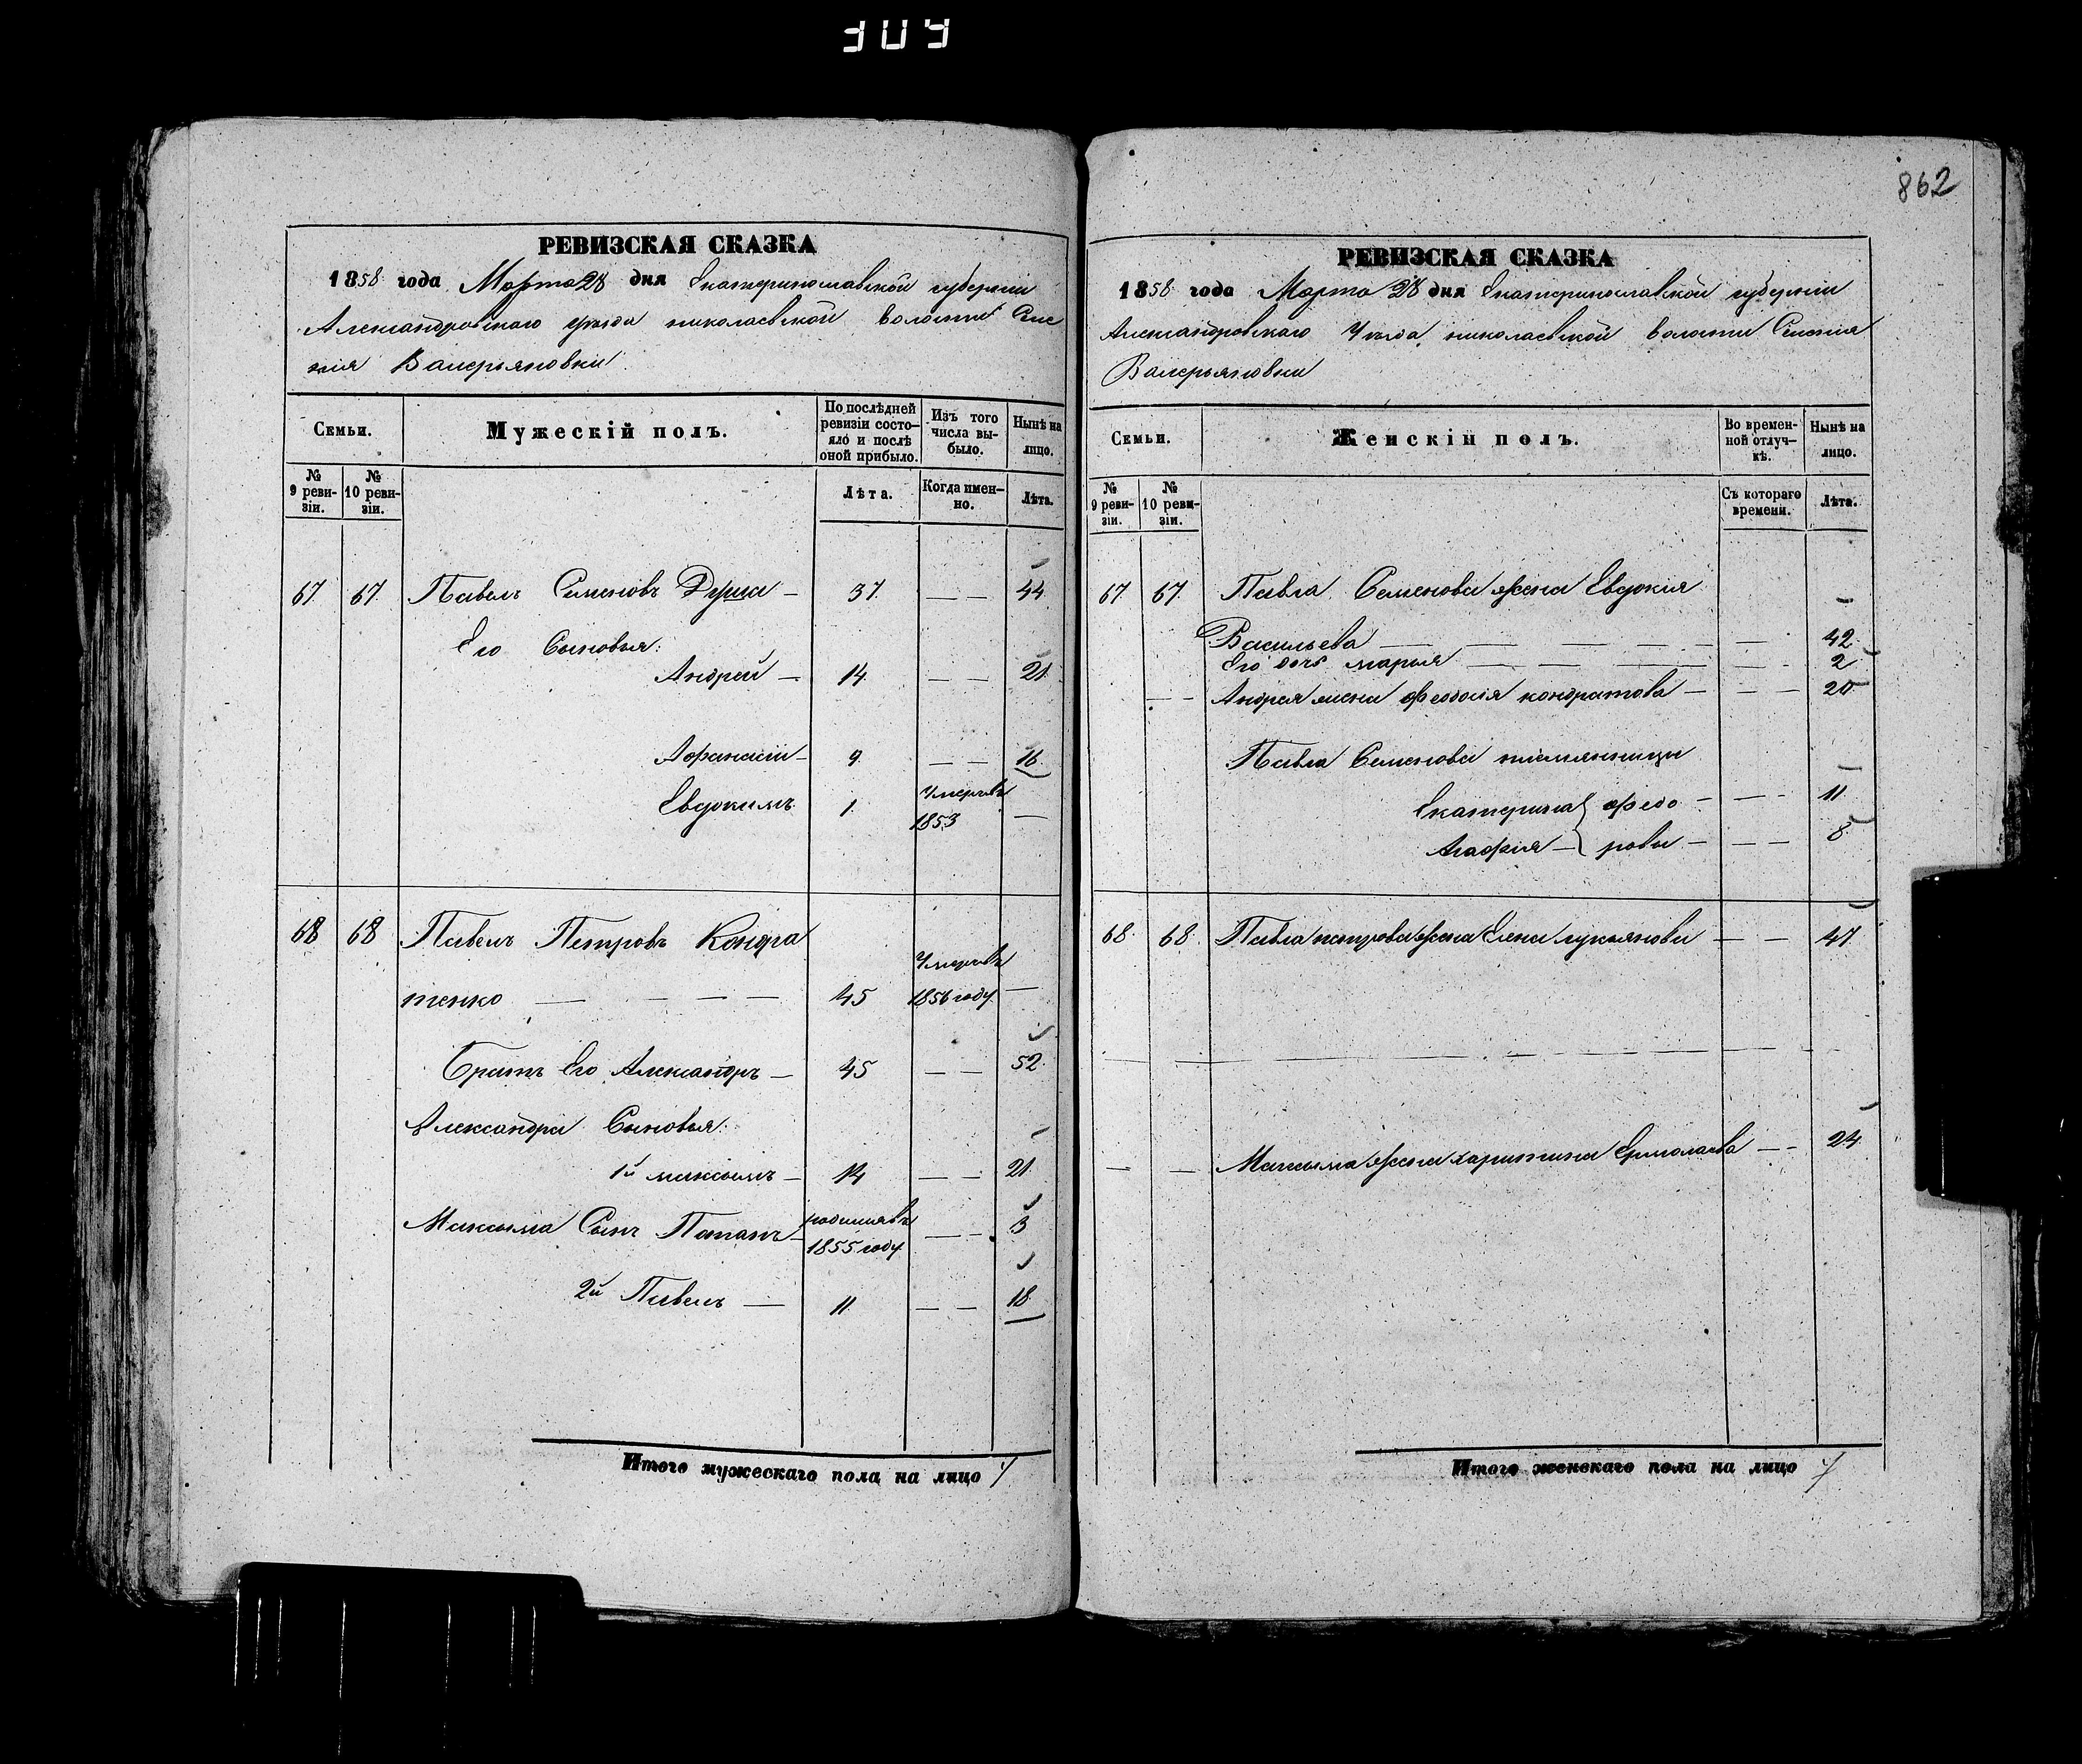 862
РЕВИЗСКАЯ СКАЗКА
1858 года Марта 28 дня Екатеринославской губернии
Александровскаго уезда николаевской волости Селе
нія Валерьяновки
Семьи.
Мужескій полъ.
По послѣдней ревизіи состо-яло и послѣ оной прибыло.
Изъ того числа вы-было.
Нынѣ на лицо.
№ 9 реви-зіи.
№ 10 реви-зіи.
Лѣта.
Когда имен-но.
Лѣта.
67 67 Павелъ Семеновъ Душа — 37 — — 44
Его Сыновья:
Андрей — 14 — — 21
Афанасій — 9 — — 16
Евдокимъ 1 Умеръ въ 1853 —
68 68 Павелъ Петровъ Кондра
тенко — — — — 45 Умеръ въ 1856 году —
Братъ Его Александръ — 45 — — 52
Александра Сыновья:
1й максимъ — 14 — — 21
Максима Сынъ Потапъ — родился въ 1855 году — — 3
2й Павелъ — 11 — — 18
Итого мужескаго пола на лицо 7
РЕВИЗСКАЯ СКАЗКА
1858 года Марта 28 дня Екатеринославской губерніи
Александровскаго Уезда николаевской волости Селенія
Валерьяновки
Семьи.
Женскій полъ.
Во времен-ной отлуч-кѣ.
Нынѣ на лицо.
№ 9 реви-зіи.
№ 10 реви-зіи.
Съ котораго времени.
Лѣта.
67 67 Павла Семенова жена Евдокія
Васильева — — — — — 42
Его дочь марья — — — — 2
— — Андрея жена Феодосія кондратова — — — 20
Павла Семенова племянницы
Екатерина } Федо — — — 11
Агафія — } ровы — — — 8
68 68 Павла петрова жена Елена лукьянова — — 47
— — Максыма жена харитина Ермолаева — — 24
Итого женскаго пола на лицо 7